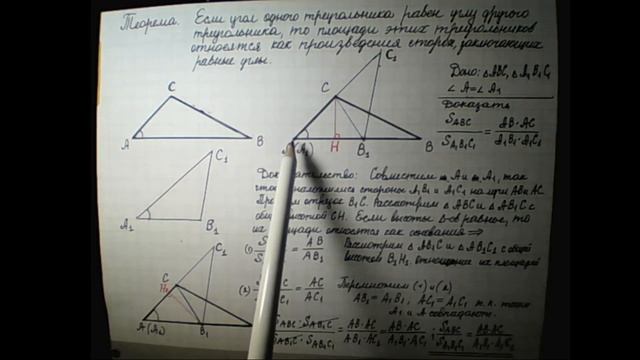 Теорема. Если угол одного треугольника равен углу другого
треугольника, то площади этих треугольников
относятся как произведения сторон, заключающих
равные углы.
Дано: △ABC, △A₁B₁C₁
∠A = ∠A₁
Доказать
S_ABC / S_A₁B₁C₁ = AB·AC / A₁B₁·A₁C₁
C
A
B
C₁
C
(A₁)
H
B₁
B
C₁
A₁
B₁
C₁
C
H₁
A(A₁)
B₁
B
Доказательство: Совместим A и A₁, так
стороны A₁B₁ и A₁C₁ на лучи AB и AC.
отрезок B₁C. Рассмотрим △ABC и △AB₁C с
высотой CH. Если высоты равные, то
их площади относятся как основания ⇒
(1) = AB / AB₁
Рассмотрим △AB₁C и △AB₁C₁ с общей
высотой B₁H₁ отношение их площадей
(2) = AC / AC₁
Перемножим (1) и (2)
AB₁ = A₁B₁, AC₁ = A₁C₁ т.к. точки
A₁ и A совпадают.
S_ABC · S_AB₁C / S_AB₁C · S_AB₁C₁ = AB·AC / AB₁·AC₁ = AB·AC / A₁B₁·A₁C₁ ; S_ABC = AB·AC / A₁B₁·A₁C₁